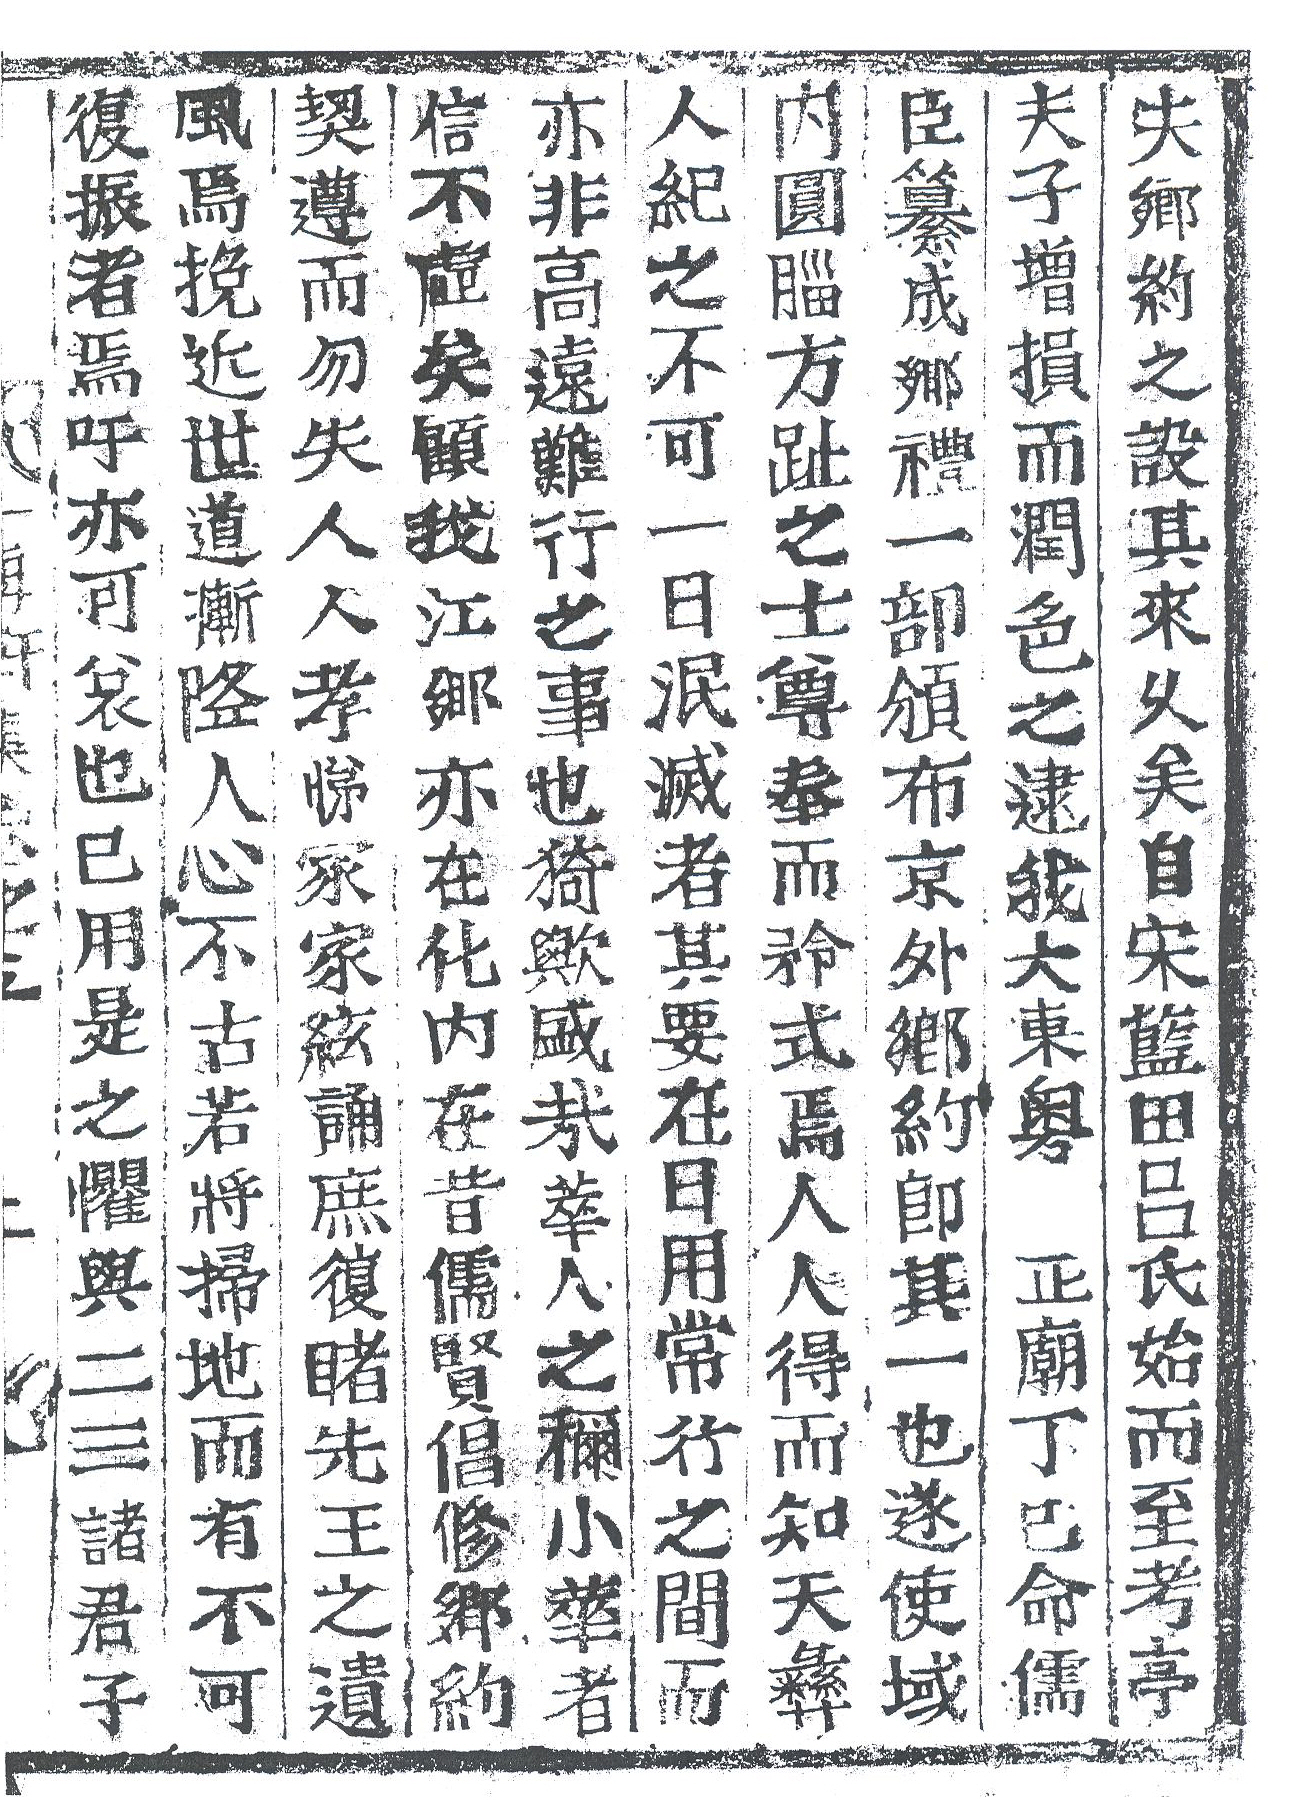 夫鄕約之設其來久矣自宋藍田呂氏始而至考亭
夫子增損而潤色之逮我大東粤　正廟丁巳命儒
臣纂成鄕禮一部頒布京外鄕約卽其一也遂使域
內圓腦方趾之士尊奉而矜式焉人人得而知天彝
人紀之不可一日泯滅者其要在日用常行之間而
亦非高遠難行之事也猗歟盛哉華人之稱小華者
信不虛矣顧我江鄕亦在化內在昔儒賢倡修鄕約
契遵而勿失人人孝悌家家絃誦庶復睹先王之遺
風焉挽近世道漸降人心不古若將掃地而有不可
復振者焉吁亦可哀也已用是之懼與二三諸君子